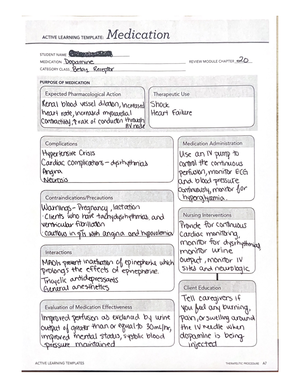 ACTIVE LEARNING TEMPLATE: Medication
STUDENT NAME
MEDICATION Dopamine
REVIEW MODULE CHAPTER 20
CATEGORY CLASS Beta, Receptor
PURPOSE OF MEDICATION
Expected Pharmacological Action
Renal blood vessel dilation, increased
heart rate, increased myocardial
contractility, ↑ rate of conduction through
AV node
Therapeutic Use
Shock
Heart Failure
Complications
Hypertensive Crisis
Cardiac complications - dysrhythmias
Angina
Necrosis
Contraindications/Precautions
Warnings - Pregnancy, lactation
- Clients who have tachydysrhythmias, and
ventricular fibrillation
cautious in pts with angina and
Interactions
MAOIs prevent inactivation of epinephrine which
prolongs the effects of epinephrine.
Tricyclic antidepressants
General anesthetics
Evaluation of Medication Effectiveness
Improved perfusion as evidenced by urine
output of greater than or equal to 30mL/hr,
improved mental status, systolic blood
pressure maintained
Medication Administration
Use an IV pump to
control the continuous
perfusion, monitor ECG
and blood pressure
continuously, monitor for
Nursing Interventions
Provide for continuous
cardiac monitoring,
monitor for dysrhythmias,
monitor urine
output, monitor IV
sites and neurologic
Client Education
Tell caregivers if
you feel any burning,
pain, or swelling around
the IV needle when
dopamine is being
injected
ACTIVE LEARNING TEMPLATES
THERAPEUTIC PROCEDURE A7